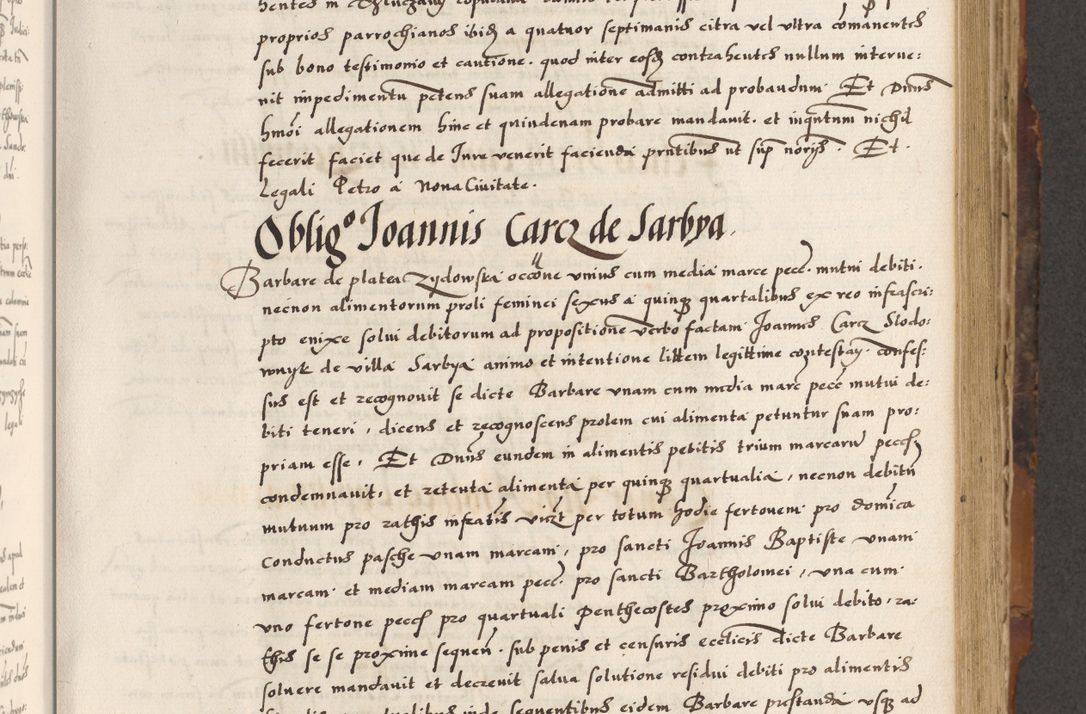 proprios parrochianos ibid a quatuor septimanis citra vel ultra comanentes
sub bono testimonio et cautione. quod inter eosd contrahentes nullum interve:
nit impedimentu petens suam allegatione admitti ad probandum. Et Dnus
hmoi allegationem hinc et quindenam probare mandavit. et inquntum nichil
fecerit faciet que de Iure venerit facienda pntibus ut sup noris. Et.
Legali Petro a Nova Civitate.
Obligo Ioannis Carcz de Sarbya.
Barbare de platea Zydowska occone unius cum media marce pecc. mutui debiti.
necnon alimentorum proli feminei sexus a quinq quartalibus ex reo infrascri:
pto enixe solui debitorum ad propositione verbo factam Joannis Carcz Slodo:
wnyk de villa Sarbya animo et intentione litem legittime contestay. confes:
sus est et recognovit se dicte Barbare unam cum media marc pecc mutui de:
biti teneri, dicens et recognoscens prolem cui alimenta petuntur suam pro:
priam esse, Et Dnus eundem in alimentis petitis trium marcaru pecc
condemnavit, et retenta alimenta per quinq quartualia, necnon debitu
mutuum pro rathis infratis vizt per totum hodie fertonem pro domica
Conductus pasche unam marcam, pro sancti Joannis Baptiste unam
marcam. et mediam marcam pecc. pro sancti Bartholomei, una cum
uno fertone pecc pro quartuali Penthecostes proximo solui debito, ra:
this se se proxime sequen. sub penis et censuris ecclicis dicte Barbare
soluere mandavit et decrevit salva solutione residui debiti pro alimentis
sequentibus eidem Barbare prestanda usq ad